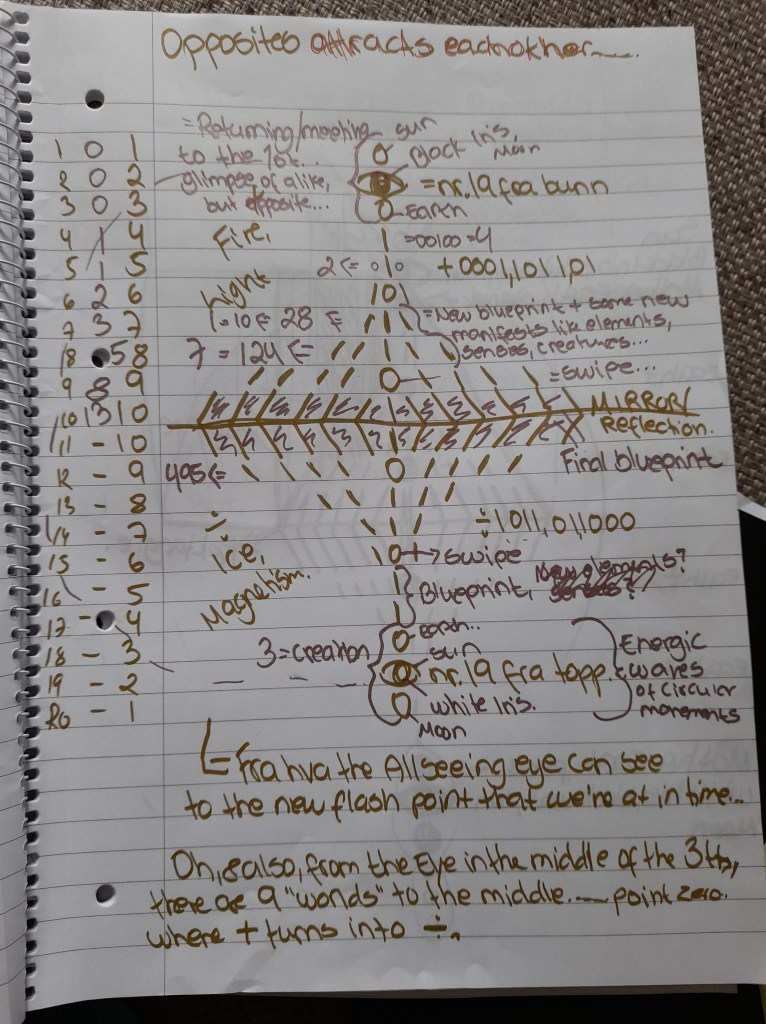 Opposites attracts eachother......
= Returning/meeting sun
1 0 1 to the 1st... Black Iris, Moon
2 0 2 glimpse of alike, = nr.19 fra bunn
3 0 3 but opposite... Earth
4 1 4 Fire, 1 = 00100 = 4
5 1 5 2 <= 010 + 0001,101101
6 2 6 Light 101 = New blueprint + some new
7 3 7 1 = 10 <= 28 <= manifests like elements,
8 5 8 7 = 124 <= senses, creatures...
9 8 9 0 = swipe...
10 13 10 MIRROR/
11 - 10 Reflection.
12 - 9 495 <= 0 Final blueprint
13 - 8
14 - 7 ÷ ÷ 1011,011000
15 - 6 Ice, 10 + → swipe
16 - 5 Magnetism. Blueprint, New elements?
17 - 4 Earth..
18 - 3 3 = creation sun Energic
19 - 2 nr.19 fra topp. waves
20 - 1 White Iris. of circular
Moon movements
Fra hva the Allseeing eye can see
to the new flash point that we're at in time...
Oh, & also, from the Eye in the middle of the 3
there are 9 "wonds" to the middle. point zero.
where + turns into ÷.